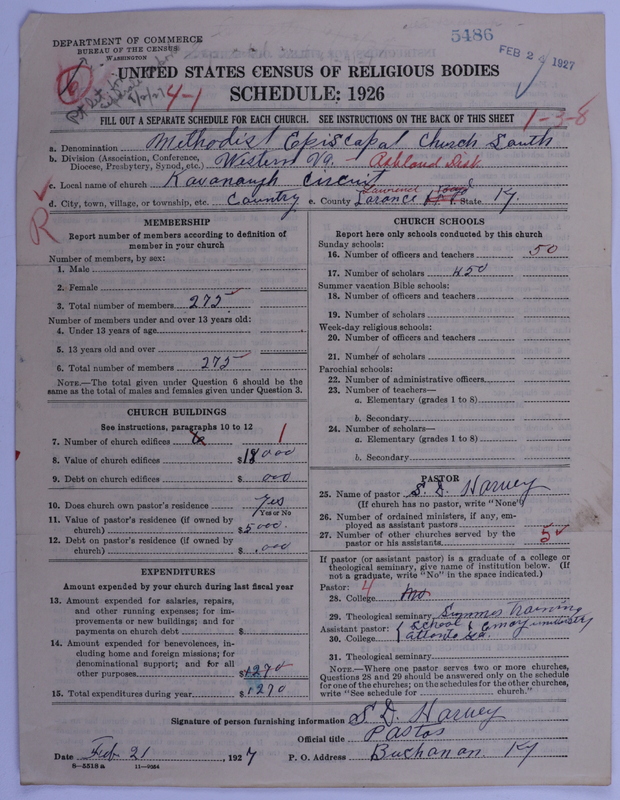 DEPARTMENT OF COMMERCE
BUREAU OF THE CENSUS
WASHINGTON
5486
FEB 24 1927
UNITED STATES CENSUS OF RELIGIOUS BODIES
4-1
SCHEDULE: 1926
FILL OUT A SEPARATE SCHEDULE FOR EACH CHURCH. SEE INSTRUCTIONS ON THE BACK OF THIS SHEET
1-3-8
a. Denomination Methodist Episcopal Church South
b. Division (Association, Conference, Diocese, Presbytery, Synod, etc.) Western Va. - Ashland Dist.
c. Local name of church Kavanaugh Circuit
d. City, town, village, or township, etc. Country e. County Larance Lawrence State Ky.
R
MEMBERSHIP
Report number of members according to definition of
member in your church
Number of members, by sex:
1. Male
2. Female
3. Total number of members 275
Number of members under and over 13 years old:
4. Under 13 years of age
5. 13 years old and over
6. Total number of members 275
NOTE.—The total given under Question 6 should be the
same as the total of males and females given under Question 3.
CHURCH BUILDINGS
See instructions, paragraphs 10 to 12
7. Number of church edifices 6 1
8. Value of church edifices $18000
9. Debt on church edifices $ 000
10. Does church own pastor's residence Yes
Yes or No
11. Value of pastor's residence (if owned by
church) $5000.
12. Debt on pastor's residence (if owned by
church) $ .000
EXPENDITURES
Amount expended by your church during last fiscal year
13. Amount expended for salaries, repairs,
and other running expenses; for im-
provements or new buildings; and for
payments on church debt $
14. Amount expended for benevolences, in-
cluding home and foreign missions; for
denominational support; and for all
other purposes $1270
15. Total expenditures during year $1270
CHURCH SCHOOLS
Report here only schools conducted by this church
Sunday schools:
16. Number of officers and teachers 50
17. Number of scholars 450
Summer vacation Bible schools:
18. Number of officers and teachers
19. Number of scholars
Week-day religious schools:
20. Number of officers and teachers
21. Number of scholars
Parochial schools:
22. Number of administrative officers
23. Number of teachers—
a. Elementary (grades 1 to 8)
b. Secondary
24. Number of scholars—
a. Elementary (grades 1 to 8)
b. Secondary
PASTOR
25. Name of pastor S. D. Harvey
(If church has no pastor, write "None")
26. Number of ordained ministers, if any, em-
ployed as assistant pastors
27. Number of other churches served by the
pastor or his assistants 5
If pastor (or assistant pastor) is a graduate of a college or
theological seminary, give name of institution below. (If
not a graduate, write "No" in the space indicated.)
Pastor: 4
28. College No
29. Theological seminary Summer Training
Assistant pastor: School Emory university
30. College Atlanta Ga.
31. Theological seminary
NOTE.—Where one pastor serves two or more churches,
Questions 28 and 29 should be answered only on the schedule
for one of the churches; on the schedules for the other churches,
write "See schedule for church."
Signature of person furnishing information S. D. Harvey
Official title Pastor
Date Feb. 21, 1927 P. O. Address Buchanan. Ky
8—5518 a 11—9354